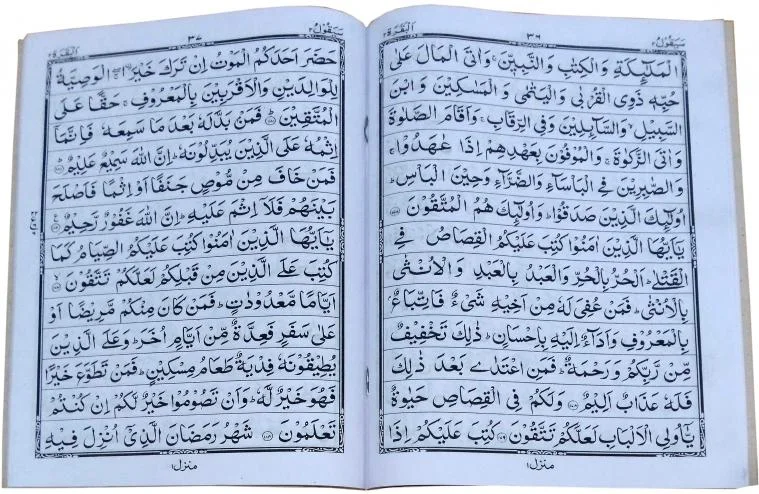 سَيَقُوْلُ ٢
٣٦
اَلْبَقَرَة ٢
الْمَلٰٓئِكَةِ وَالْكِتٰبِ وَالنَّبِيّٖنَ ۚ وَاٰتَى الْمَالَ عَلٰى
حُبِّهٖ ذَوِى الْقُرْبٰى وَالْيَتٰمٰى وَالْمَسٰكِيْنَ وَابْنَ
السَّبِيْلِ ۙ وَالسَّآئِلِيْنَ وَفِى الرِّقَابِ ۚ وَاَقَامَ الصَّلٰوةَ
وَاٰتَى الزَّكٰوةَ ۚ وَالْمُوْفُوْنَ بِعَهْدِهِمْ اِذَا عٰهَدُوْا ۚ
وَالصّٰبِرِيْنَ فِى الْبَاْسَآءِ وَالضَّرَّآءِ وَحِيْنَ الْبَاْسِ ؕ
اُولٰٓئِكَ الَّذِيْنَ صَدَقُوْا ؕ وَاُولٰٓئِكَ هُمُ الْمُتَّقُوْنَ ﴿١٧٧﴾
يٰۤاَيُّهَا الَّذِيْنَ اٰمَنُوْا كُتِبَ عَلَيْكُمُ الْقِصَاصُ فِى
الْقَتْلٰى ؕ اَلْحُرُّ بِالْحُرِّ وَالْعَبْدُ بِالْعَبْدِ وَالْاُنْثٰى
بِالْاُنْثٰى ؕ فَمَنْ عُفِىَ لَهٗ مِنْ اَخِيْهِ شَىْءٌ فَاتِّبَاعٌۢ
بِالْمَعْرُوْفِ وَاَدَآءٌ اِلَيْهِ بِاِحْسَانٍ ؕ ذٰلِكَ تَخْفِيْفٌ
مِّنْ رَّبِّكُمْ وَرَحْمَةٌ ؕ فَمَنِ اعْتَدٰى بَعْدَ ذٰلِكَ
فَلَهٗ عَذَابٌ اَلِيْمٌ ﴿١٧٨﴾ وَلَكُمْ فِى الْقِصَاصِ حَيٰوةٌ
يّٰۤاُولِى الْاَلْبَابِ لَعَلَّكُمْ تَتَّقُوْنَ ﴿١٧٩﴾ كُتِبَ عَلَيْكُمْ اِذَا
منزل ١
سَيَقُوْلُ ٢
٣٧
اَلْبَقَرَة ٢
حَضَرَ اَحَدَكُمُ الْمَوْتُ اِنْ تَرَكَ خَيْرَا ۖۚ اۨلْوَصِيَّةُ
لِلْوَالِدَيْنِ وَالْاَقْرَبِيْنَ بِالْمَعْرُوْفِ ۚ حَقًّا عَلَى
الْمُتَّقِيْنَ ؕ﴿١٨٠﴾ فَمَنْۢ بَدَّلَهٗ بَعْدَ مَا سَمِعَهٗ فَاِنَّمَاۤ
اِثْمُهٗ عَلَى الَّذِيْنَ يُبَدِّلُوْنَهٗ ؕ اِنَّ اللّٰهَ سَمِيْعٌ عَلِيْمٌ ؕ﴿١٨١﴾
فَمَنْ خَافَ مِنْ مُّوْصٍ جَنَفًا اَوْ اِثْمًا فَاَصْلَحَ
بَيْنَهُمْ فَلَاۤ اِثْمَ عَلَيْهِ ؕ اِنَّ اللّٰهَ غَفُوْرٌ رَّحِيْمٌ ﴿١٨٢﴾
يٰۤاَيُّهَا الَّذِيْنَ اٰمَنُوْا كُتِبَ عَلَيْكُمُ الصِّيَامُ كَمَا
كُتِبَ عَلَى الَّذِيْنَ مِنْ قَبْلِكُمْ لَعَلَّكُمْ تَتَّقُوْنَ ۙ﴿١٨٣﴾
اَيَّامًا مَّعْدُوْدٰتٍ ؕ فَمَنْ كَانَ مِنْكُمْ مَّرِيْضًا اَوْ
عَلٰى سَفَرٍ فَعِدَّةٌ مِّنْ اَيَّامٍ اُخَرَ ؕ وَعَلَى الَّذِيْنَ
يُطِيْقُوْنَهٗ فِدْيَةٌ طَعَامُ مِسْكِيْنٍ ؕ فَمَنْ تَطَوَّعَ خَيْرًا
فَهُوَ خَيْرٌ لَّهٗ ؕ وَاَنْ تَصُوْمُوْا خَيْرٌ لَّكُمْ اِنْ كُنْتُمْ
تَعْلَمُوْنَ ﴿١٨٤﴾ شَهْرُ رَمَضَانَ الَّذِىْۤ اُنْزِلَ فِيْهِ
منزل ١